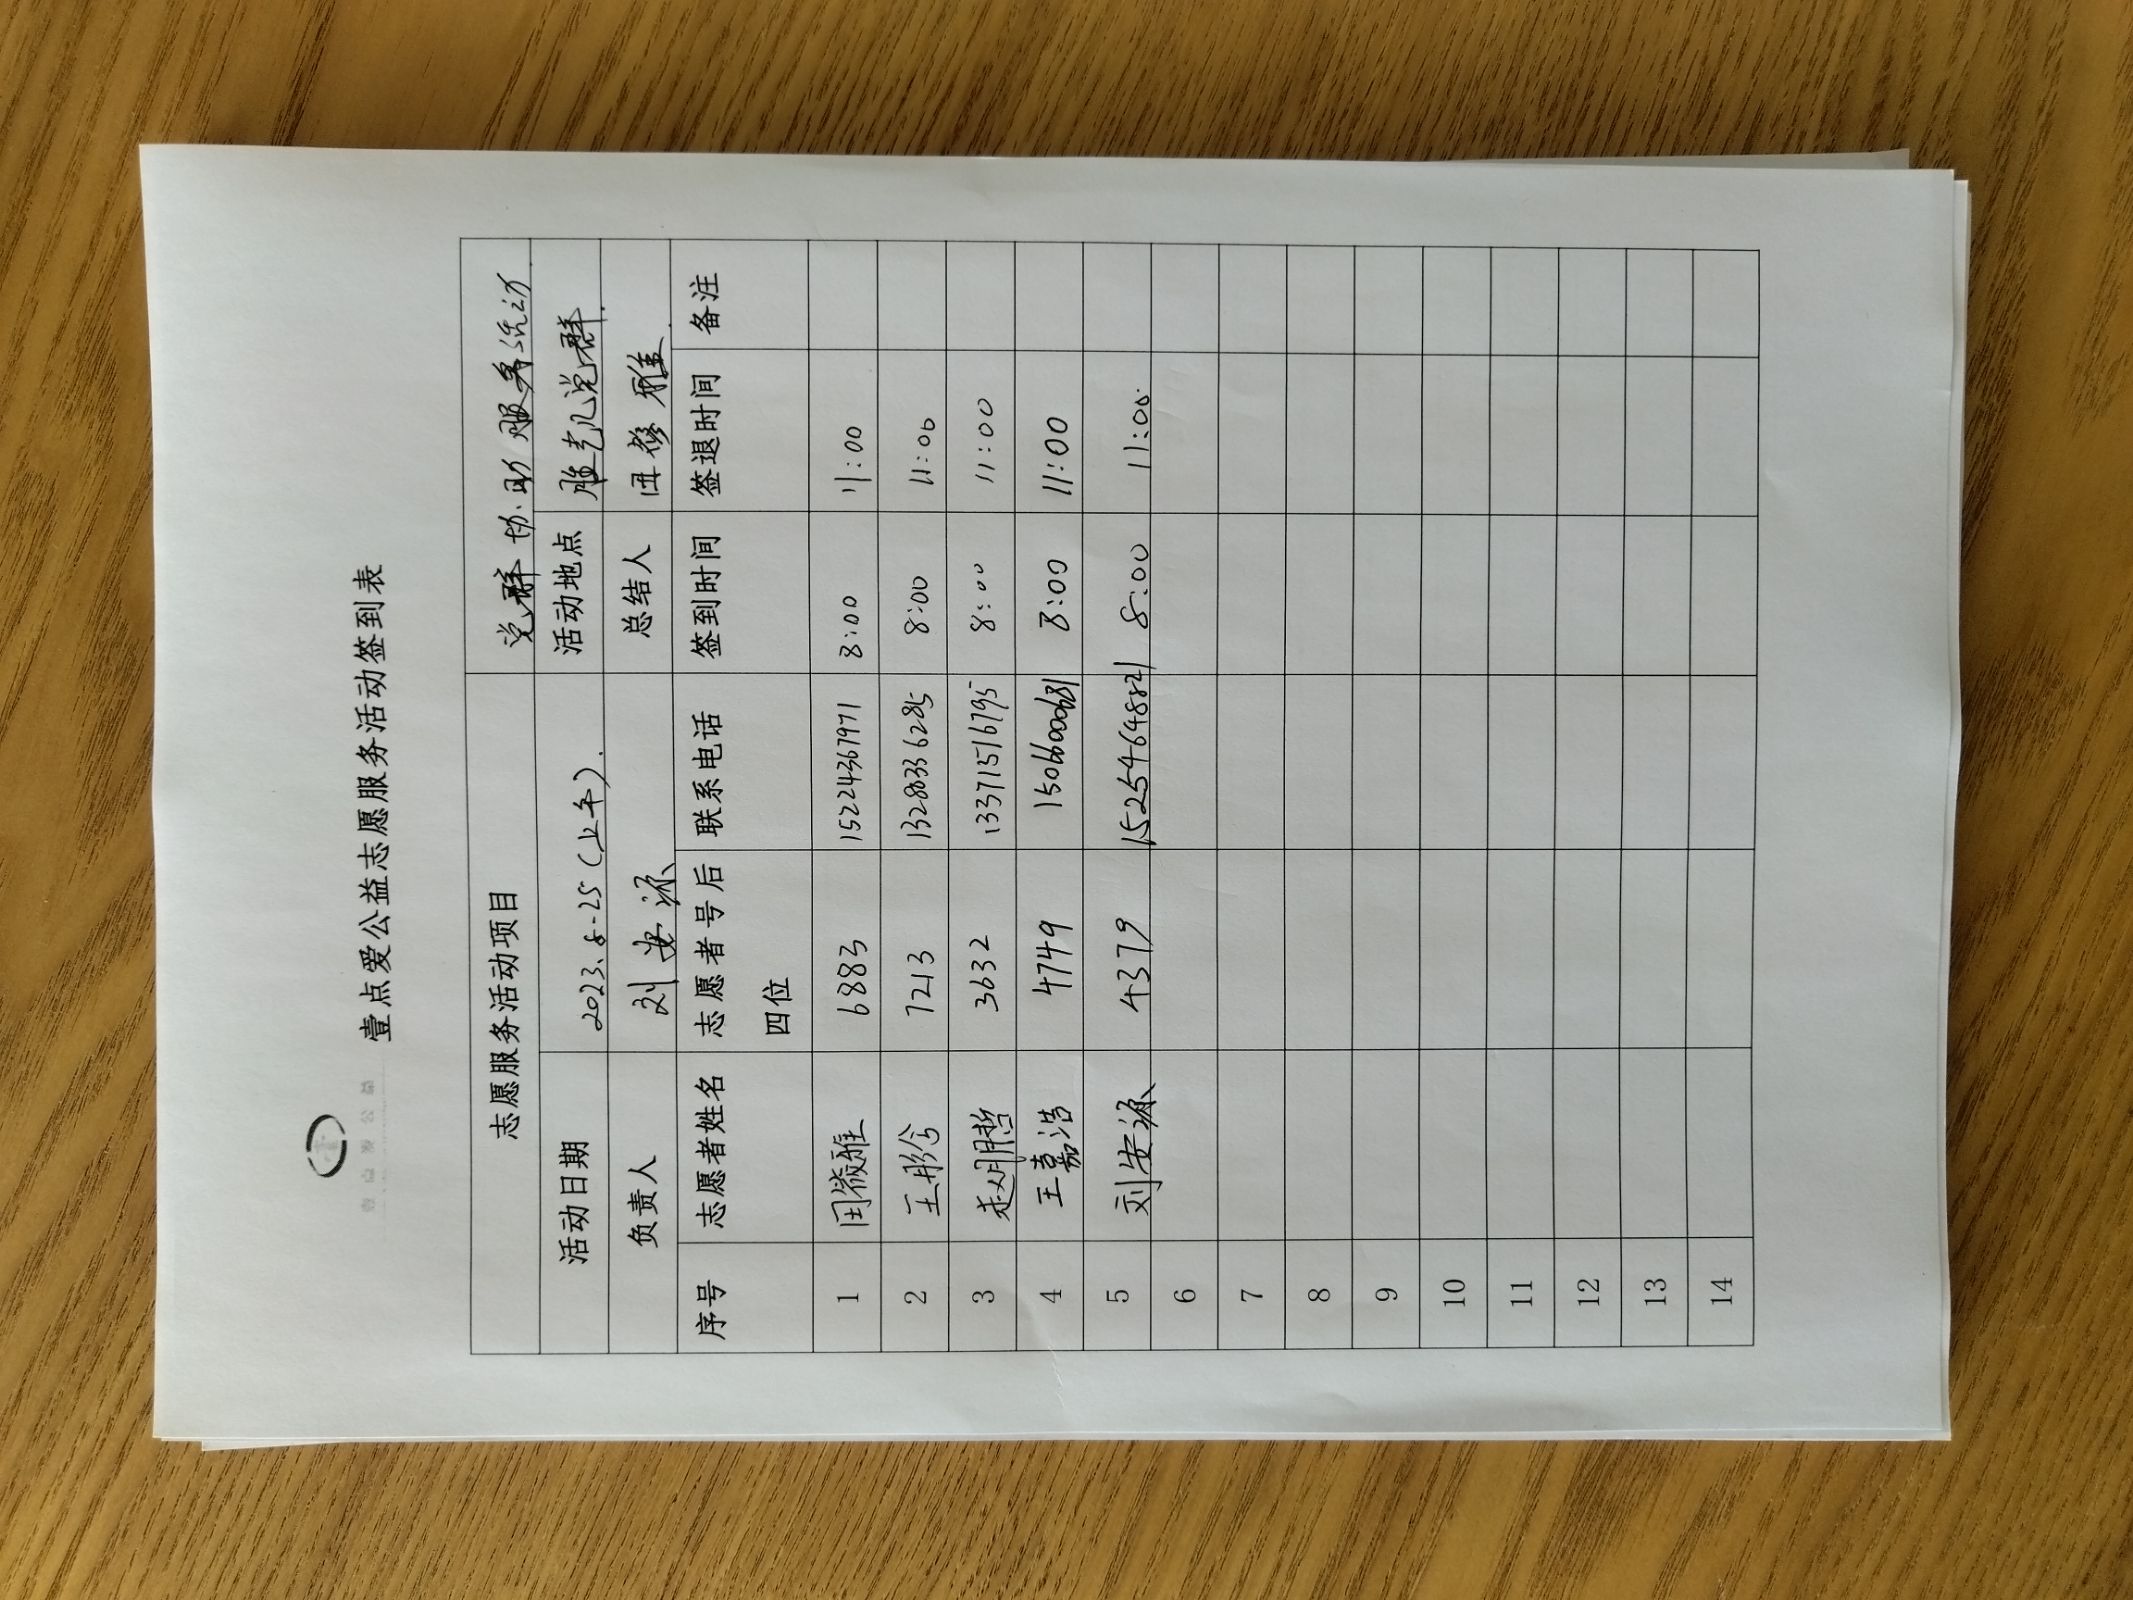 壹点爱公益志愿服务活动签到表
志愿服务活动项目 党群协助服务活动
活动日期 2023.8.25(上午). 活动地点 雅艺汇党群.
负责人 刘安源 总结人 田薇雅
序号 志愿者姓名 志愿者号后四位 联系电话 签到时间 签退时间 备注
1 田薇雅 6883 15224367971 8:00 11:00
2 王彤兮 7213 13280336285 8:00 11:00
3 赵明哲 3632 13371516795 8:00 11:00
4 王嘉浩 4749 15066000681 8:00 11:00
5 刘安源 4379 15254648821 8:00 11:00
6
7
8
9
10
11
12
13
14